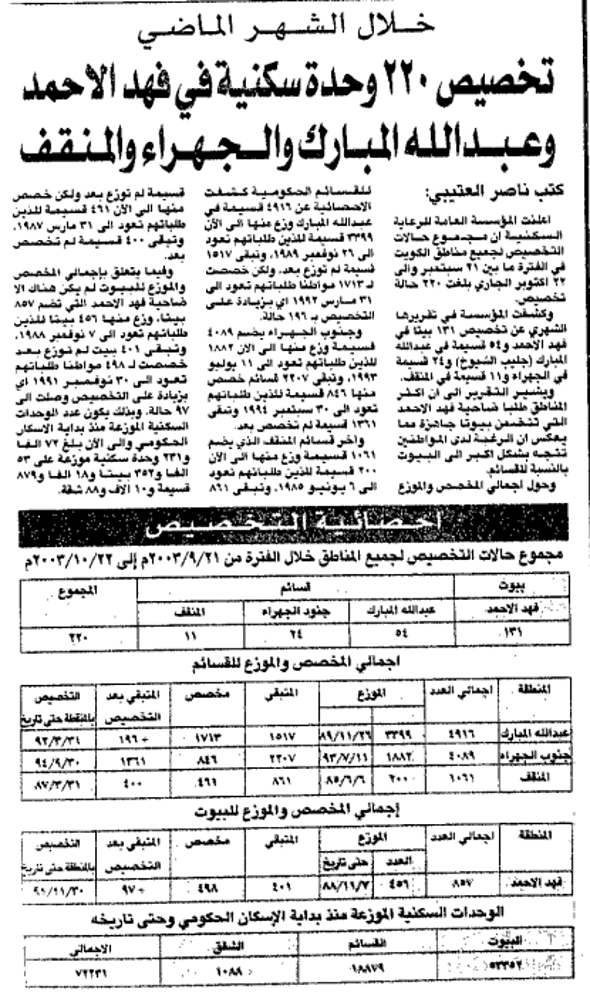 خلال الشهر الماضي
تخصيص ٢٢٠ وحدة سكنية في فهد الاحمد
وعبدالله المبارك والجهراء والمنقف
كتب ناصر العتيبي:
اعلنت المؤسسة العامة للرعاية
السكنية ان مجموع حالات
التخصيص لجميع مناطق الكويت
في الفترة ما بين ٢١ سبتمبر والى
٢٢ اكتوبر الجاري بلغت ٢٢٠ حالة
تخصيص.
وكشفت المؤسسة في تقريرها
الشهري عن تخصيص ١٣١ بيتا في
فهد الاحمد و٥٤ قسيمة في عبدالله
المبارك (جليب الشيوخ) و٢٤ قسيمة
في الجهراء و١١ قسيمة في المنقف.
ويشير التقرير الى ان اكثر
المناطق طلبا ضاحية فهد الاحمد
التي تتضمن بيوتا جاهزة مما
يعكس ان الرغبة لدى المواطنين
تتجه بشكل اكبر الى البيوت
بالنسبة للقسائم.
وحول اجمالي المخصص والموزع
للقسائم الحكومية كشفت
الاحصائية عن ٤٩١٦ قسيمة في
عبدالله المبارك وزع منها الى الآن
٣٣٩٩ قسيمة للذين طلباتهم تعود
الى ٢٦ نوفمبر ١٩٨٩، وتبقى ١٥١٧
قسيمة لم توزع بعد، ولكن خصصت
لـ ١٧١٣ مواطنا طلباتهم تعود الى
٣١ مارس ١٩٩٢ اي بزيادة على
التخصيص بـ ١٩٦ حالة.
وجنوب الجهراء يضم ٤٠٨٩
قسيمة وزع منها الى الآن ١٨٨٢
للذين طلباتهم تعود الى ١١ يوليو
١٩٩٣، وتبقى ٢٢٠٧ قسائم خصص
منها ٨٤٦ قسيمة للذين طلباتهم
تعود الى ٣٠ سبتمبر ١٩٩٤ وتبقى
١٣٦١ قسيمة لم تخصص بعد.
واخر قسائم المنقف الذي يضم
١٠٦١ قسيمة وزع منها الى الآن
٢٠٠ قسيمة للذين طلباتهم تعود
الى ٦ يونيو ١٩٨٥، وتبقى ٨٦١
قسيمة لم توزع بعد ولكن خصص
منها الى الآن ٤٦١ قسيمة للذين
طلباتهم تعود الى ٣١ مارس ١٩٨٧،
وتبقى ٤٠٠ قسيمة لم تخصص
بعد.
وفيما يتعلق بإجمالي المخصص
والموزع للبيوت لم يكن هناك الا
ضاحية فهد الاحمد التي تضم ٨٥٧
بيتا، وزع منها ٤٥٦ بيتا للذين
طلباتهم تعود الى ٧ نوفمبر ١٩٨٨،
وتبقى ٤٠١ بيت لم توزع بعد
خصصت لـ ٤٩٨ مواطنا طلباتهم
تعود الى ٣٠ نوفمبر ١٩٩١ اي
بزيادة على التخصيص وصلت الى
٩٧ حالة. وبذلك يكون عدد الوحدات
السكنية الموزعة منذ بداية الاسكان
الحكومي والى الآن بلغ ٧٢ الفا
و٢٣١ وحدة سكنية موزعة على ٥٣
الفا و٣٥٢ بيتا و١٨ الفا و٨٧٩
قسيمة و١٠ الاف و٨٨ شقة.
احصائية التخصيص
مجموع حالات التخصيص لجميع المناطق خلال الفترة من ٢٠٠٣/٩/٢١م إلى ٢٠٠٣/١٠/٢٢م
بيوت قسائم المجموع
فهد الاحمد عبدالله المبارك جنود الجهراء المنقف
١٣١ ٥٤ ٢٤ ١١ ٢٢٠
اجمالي المخصص والموزع للقسائم
المنطقة اجمالي العدد الموزع المتبقي مخصص المتبقي بعد التخصيص التخصيص بالمنطقة حتى تاريخ
عبدالله المبارك ٤٩١٦ ٣٣٩٩ ٨٩/١١/٢٦ ١٥١٧ ١٧١٣ +١٩٦ ٩٢/٣/٣١
جنوب الجهراء ٤٠٨٩ ١٨٨٢ ٩٣/٧/١١ ٢٢٠٧ ٨٤٦ ١٣٦١ ٩٤/٩/٣٠
المنقف ١٠٦١ ٢٠٠ ٨٥/٦/٦ ٨٦١ ٤٦١ ٤٠٠ ٨٧/٣/٣١
إجمالي المخصص والموزع للبيوت
المنطقة اجمالي العدد الموزع المتبقي مخصص المتبقي بعد التخصيص التخصيص بالمنطقة حتى تاريخ
العدد حتى تاريخ
فهد الاحمد ٨٥٧ ٤٥٦ ٨٨/١١/٧ ٤٠١ ٤٩٨ +٩٧ ٩١/١١/٣٠
الوحدات السكنية الموزعة منذ بداية الإسكان الحكومي وحتى تاريخه
البيوت القسائم الشقق الاجمالي
٥٣٣٥٢ ١٨٨٧٩ ١٠٨٨ ٧٢٢٣١